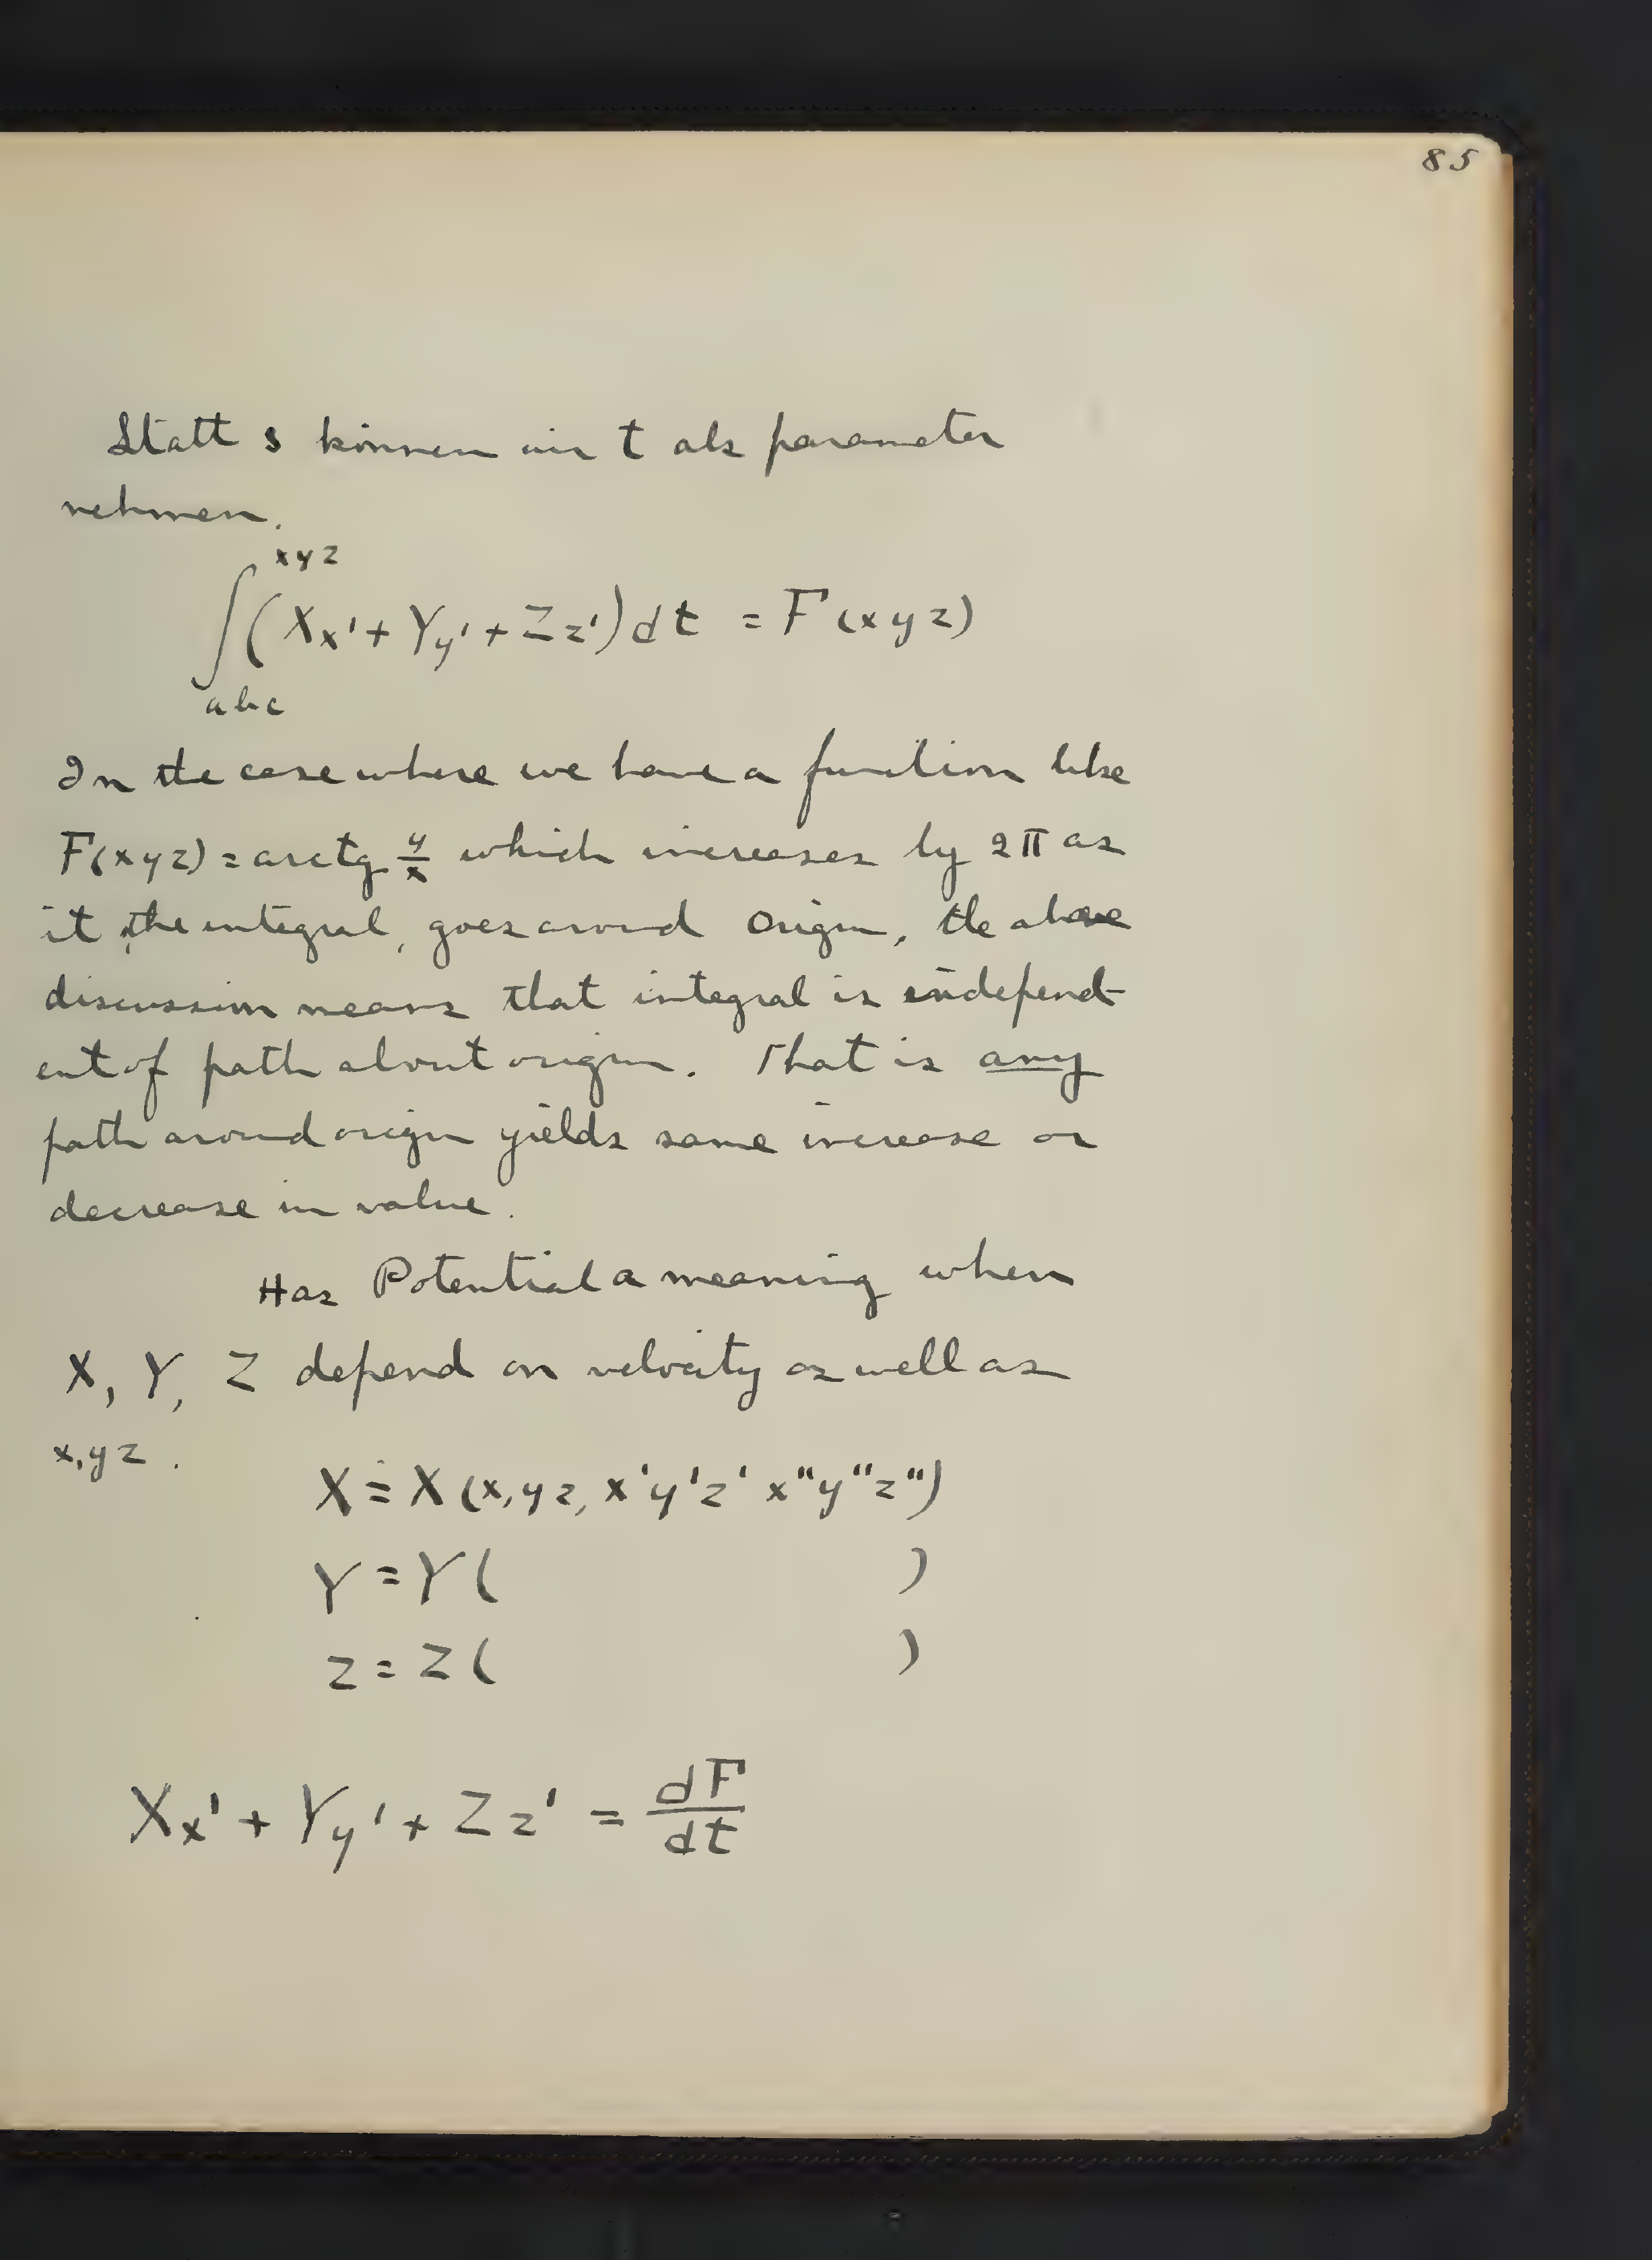 85
Statt s können wir t als parameter
nehmen.
∫_{abc}^{xyz} (Xx' + Yy' + Zz') dt = F(xyz)
In the case where we have a function like
F(xyz) = arctg y/x which increases by 2π as
it, the integral, goes around origin, the above
discussion means that integral is independ-
ent of path about origin. That is any
path around origin yields same increase or
decrease in value.
Has Potential a meaning when
X, Y, Z depend on velocity as well as
x, y z.
X = X (x, y z, x' y' z' x" y" z")
Y = Y ( )
Z = Z ( )
Xx' + Yy' + Zz' = dF/dt